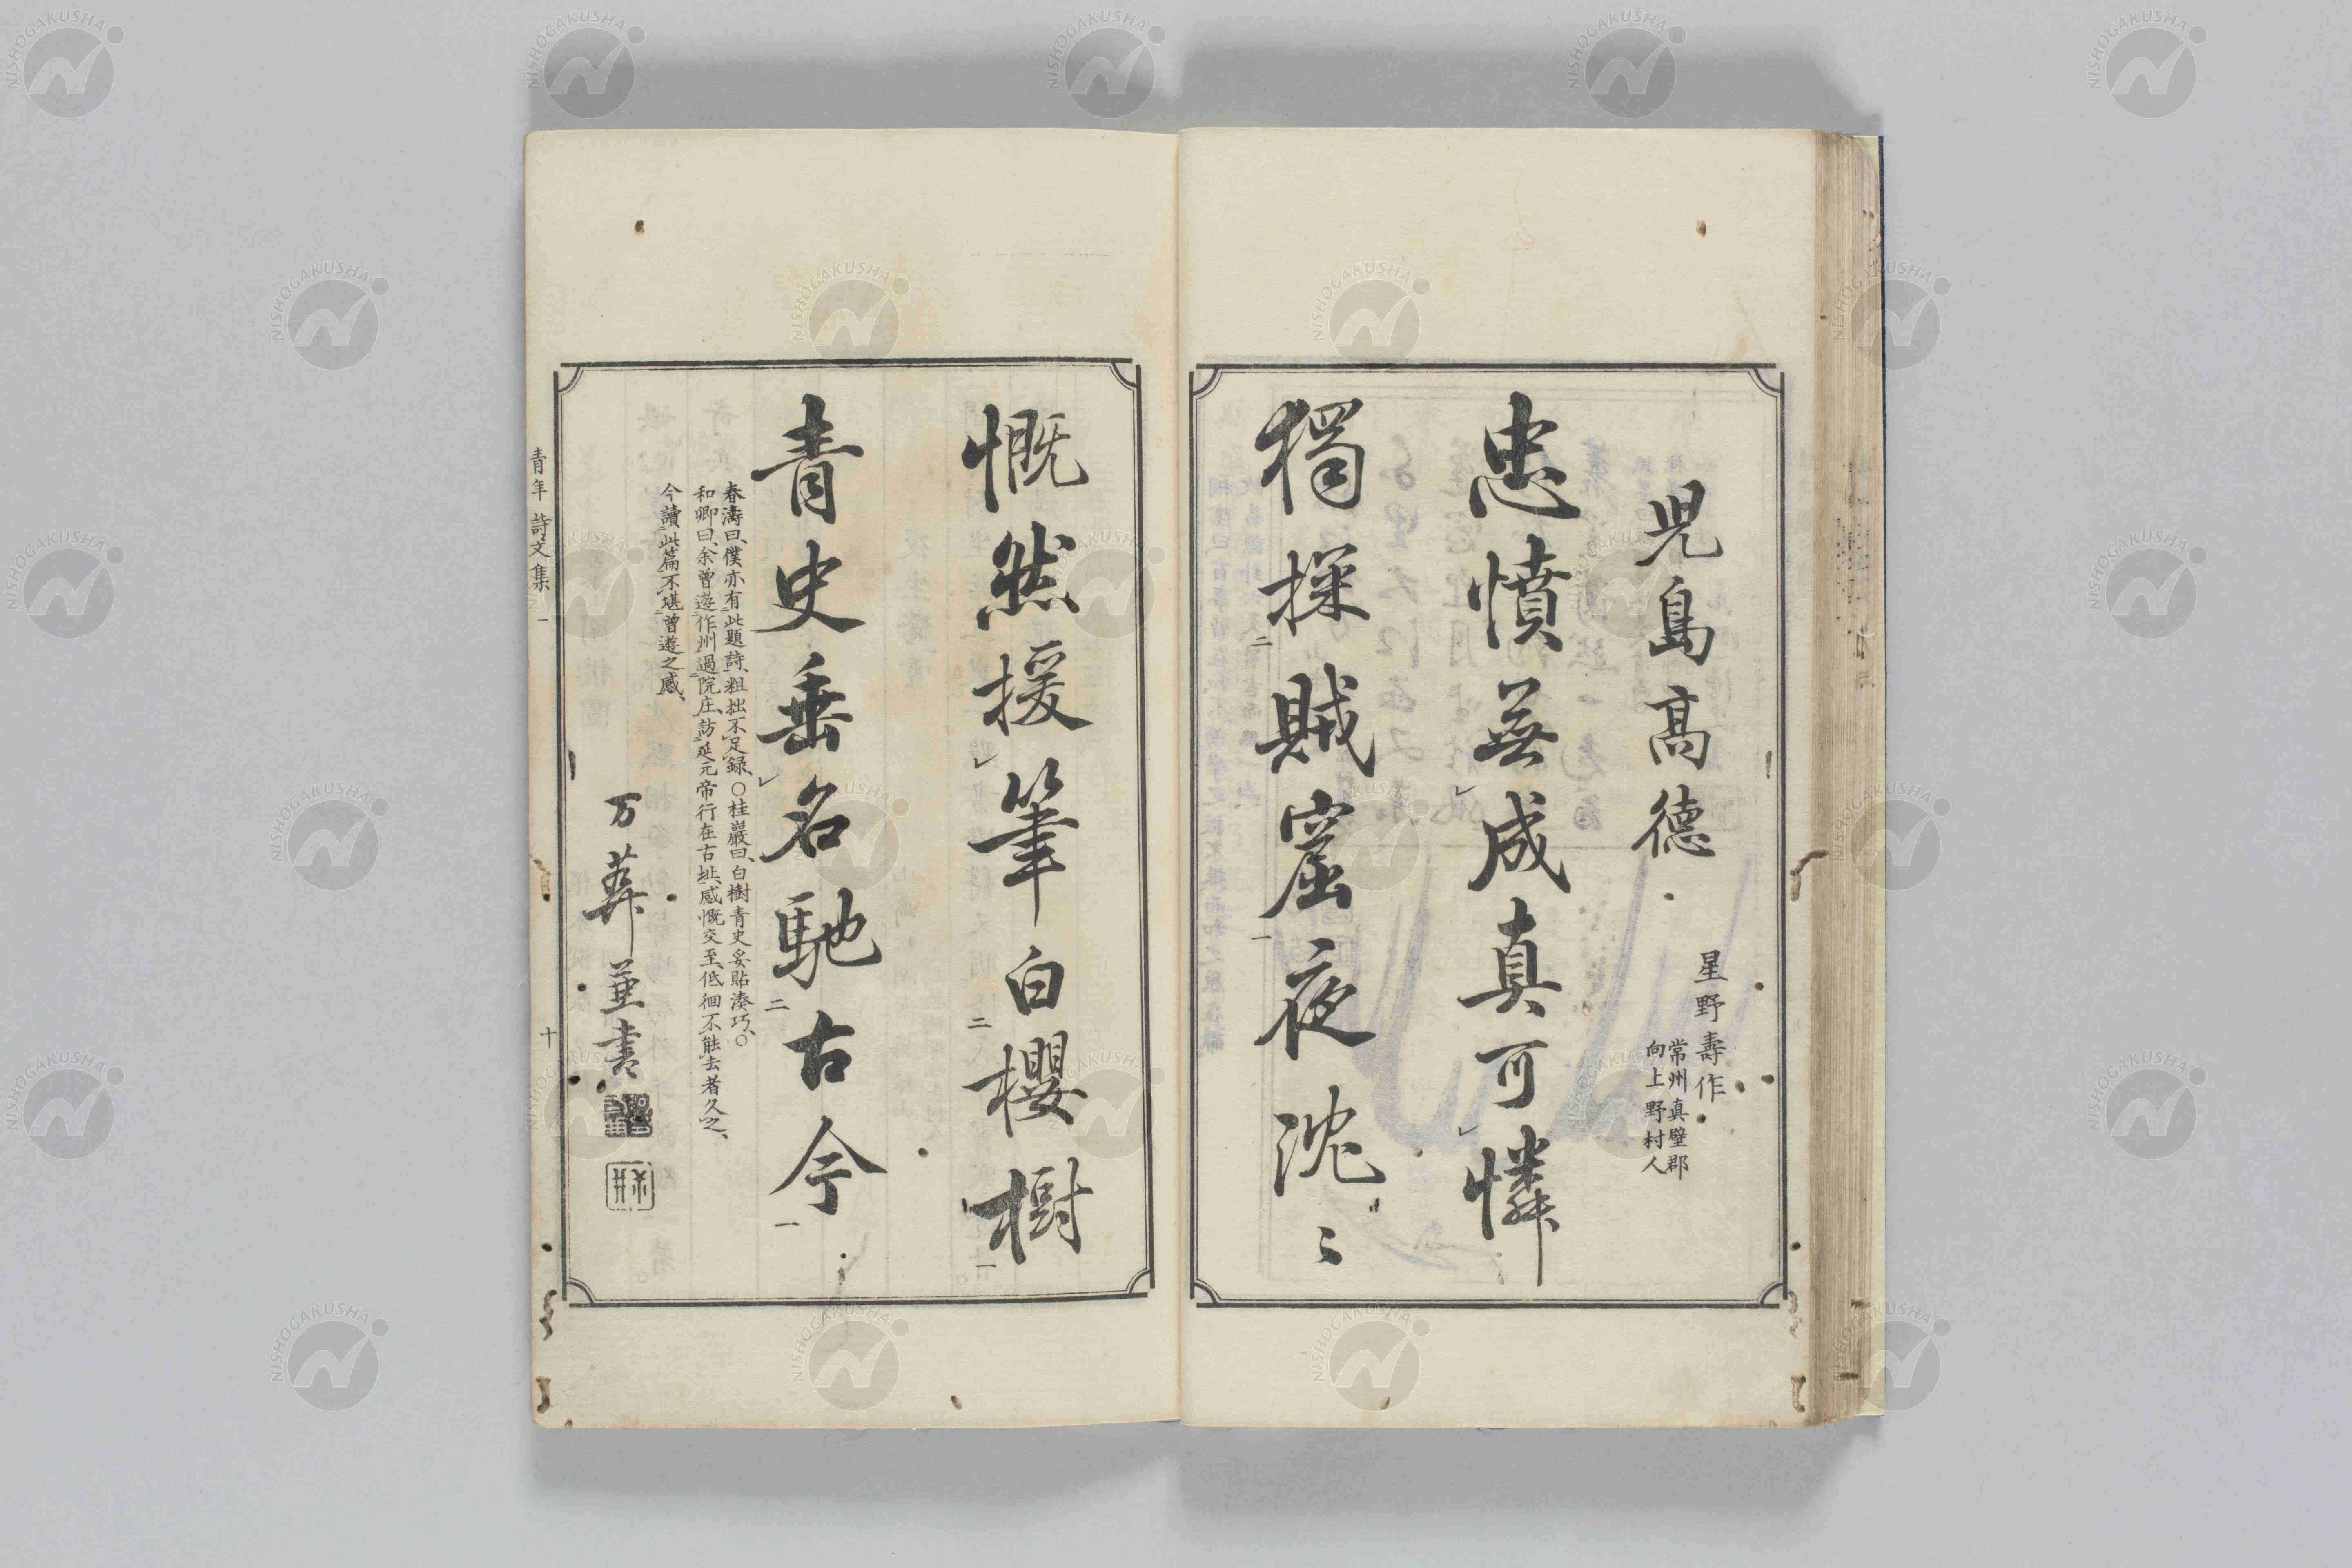 児島高徳
星野壽作
常州真壁郡
向上野村人
忠憤無成真可憐
獨探賊窟夜沈〻
慨然援筆白櫻樹
青史垂名馳古今
春濤曰、僕亦有此題詩、粗拙不足録、○桂巖曰、白樹青史妥貼湊巧、○
和卿曰、余曾遊作州過院庄、訪延元帝行在古址、感慨交至、低徊不能去者久之、
今讀此篇不堪曾遊之感、
万 華書
青年詩文集 一
十
NISHOGAKUSHA